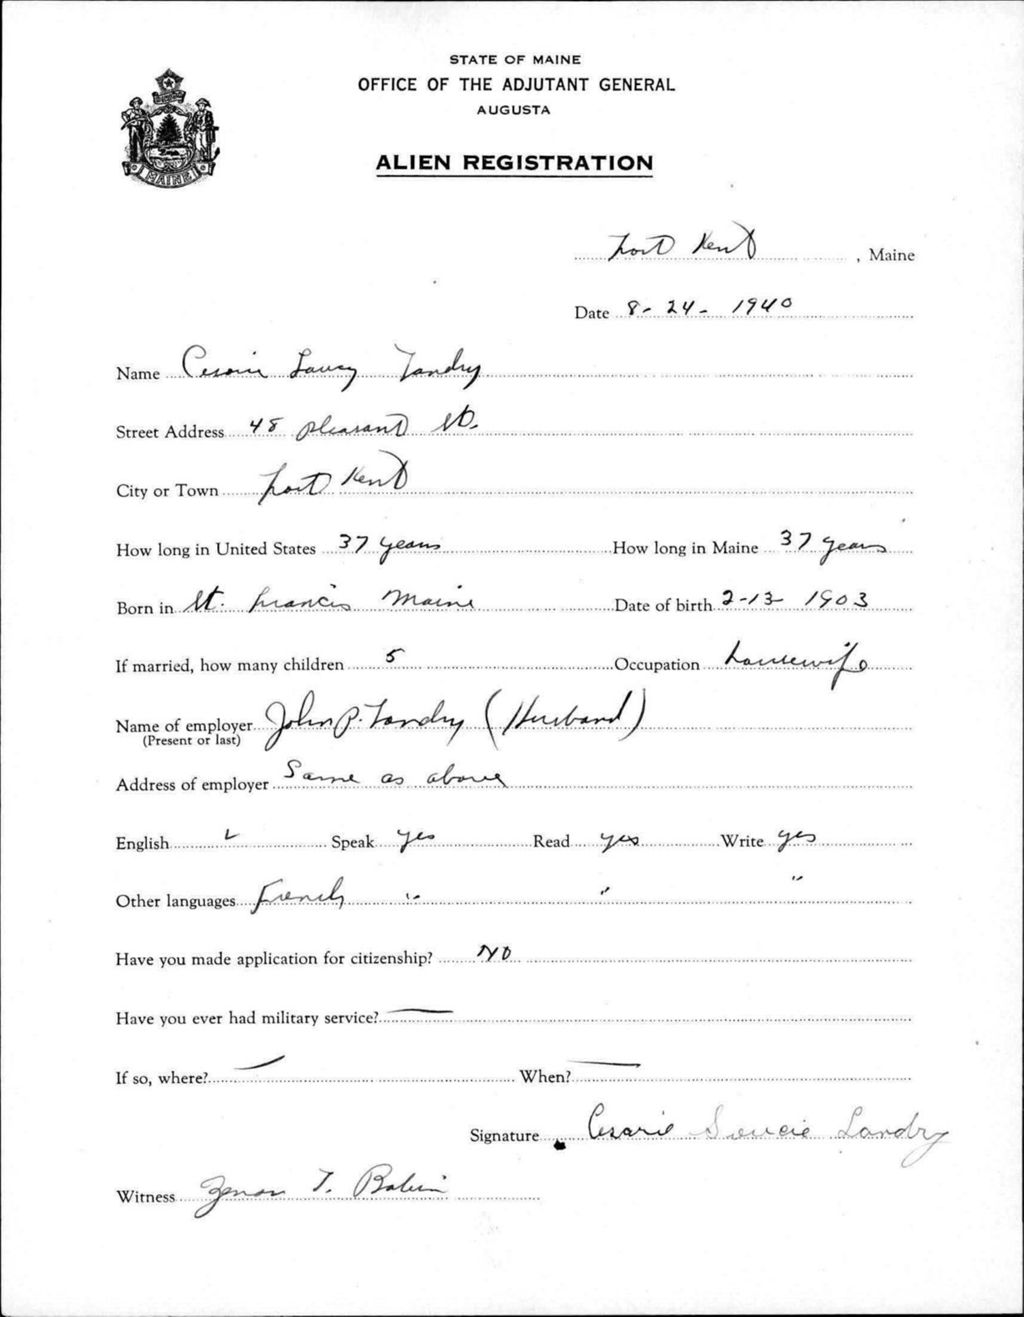 STATE OF MAINE
OFFICE OF THE ADJUTANT GENERAL
AUGUSTA
ALIEN REGISTRATION
MAINE
Fort Kent, Maine
Date 8-24-1940
Name Cesarie Landry
Street Address 48 Pleasant St.
City or Town Fort Kent
How long in United States 37 years How long in Maine 37 years
Born in St. Francis Maine Date of birth 2-13-1903
If married, how many children 5 Occupation housewife
Name of employer John P. Landry (Husband)
(Present or last)
Address of employer Same as above
English ✓ Speak yes Read yes Write yes
Other languages French " " "
Have you made application for citizenship? No
Have you ever had military service? —
If so, where? — When? —
Signature Cesarie Soucie Landry
Witness Zenon T.